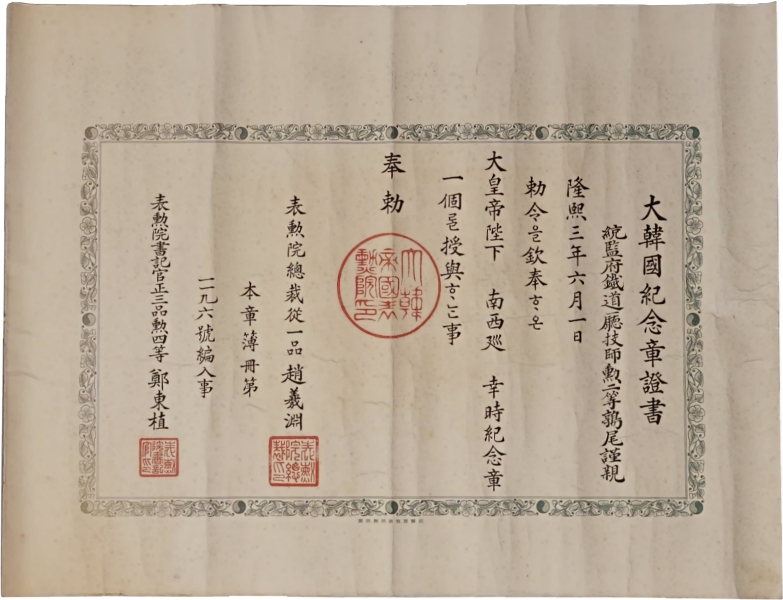 大韓國紀念章證書
統監府鐵道廳技師勲二等鶉尾謹親
隆熙三年六月一日
勅令을欽奉ᄒᆞ온
大皇帝陛下 南西廵 幸時紀念章
一個를授與ᄒᆞᄂᆞᆫ事
奉勅
大韓帝國表勳院印
表勲院總裁從一品趙羲淵
表勳院總裁印
本章簿冊第
二九六號編入事
表勲院書記官正三品勲四等鄭東植
表勳院書記官印